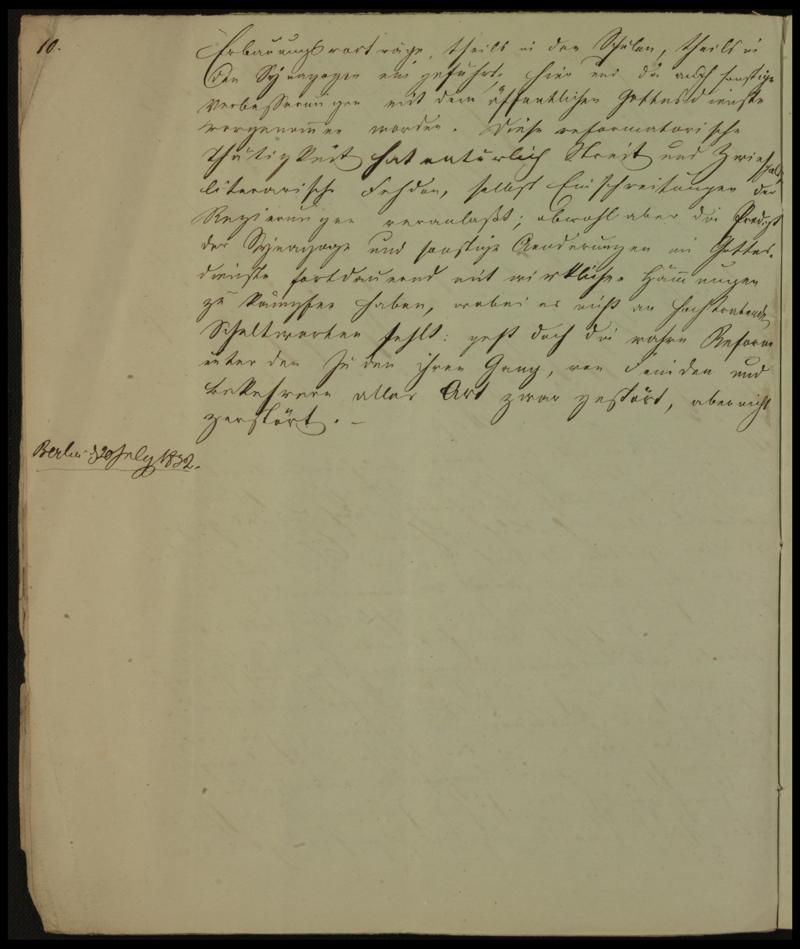 10.
Erbauungsvorträge, theils in den Schulen, theils in
den Synagogen eingeführt, hier und da auch sonstige
Verbesserungen mit dem öffentlichen Gottesdienste
vorgenommen worden. Diese reformatorische
Thätigkeit hat natürlich Streit und Zwiespalt,
literarische Fehden, selbst Einschreitungen der
Regierungen veranlaßt; obwohl aber die Predigt
der Synagoge und sonstige Aenderungen im Gottes-
dienste fortdauernd mit wirklichen Hem̄ungen
zu kämpfen haben, wobei es nicht an
Scheltworten fehlt: geht doch die wahre Reform
unter den Juden ihren Gang, von Feinden und
Bekehrern aller Art zwar gestört, aber nicht
zerstört. –
Berlin d 20 July 1832.